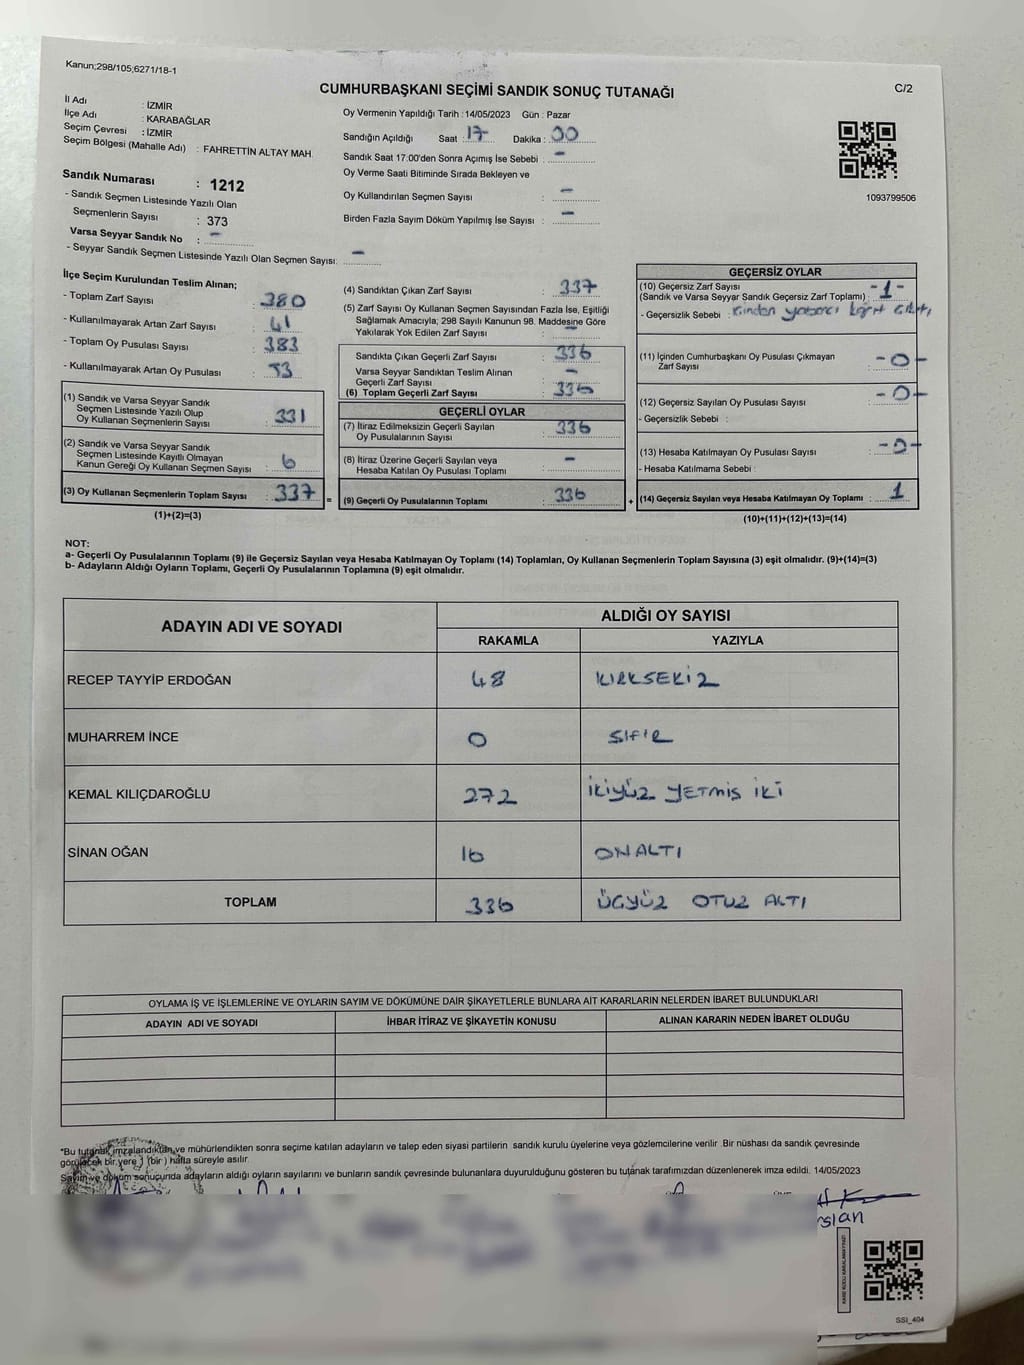 Kanun;298/105;6271/18-1
CUMHURBAŞKANI SEÇİMİ SANDIK SONUÇ TUTANAĞI
C/2
İl Adı : İZMİR
İlçe Adı : KARABAĞLAR
Seçim Çevresi : İZMİR
Seçim Bölgesi (Mahalle Adı) : FAHRETTİN ALTAY MAH.
Sandık Numarası : 1212
- Sandık Seçmen Listesinde Yazılı Olan
Seçmenlerin Sayısı : 373
Varsa Seyyar Sandık No : -
- Seyyar Sandık Seçmen Listesinde Yazılı Olan Seçmen Sayısı: -
Oy Vermenin Yapıldığı Tarih : 14/05/2023 Gün : Pazar
Sandığın Açıldığı Saat : 17 Dakika : 00
Sandık Saat 17:00'den Sonra Açımış İse Sebebi : -
Oy Verme Saati Bitiminde Sırada Bekleyen ve
Oy Kullandırılan Seçmen Sayısı : -
Birden Fazla Sayım Döküm Yapılmış İse Sayısı : -
1093799506
İlçe Seçim Kurulundan Teslim Alınan;
- Toplam Zarf Sayısı : 380
- Kullanılmayarak Artan Zarf Sayısı : 41
- Toplam Oy Pusulası Sayısı : 383
- Kullanılmayarak Artan Oy Pusulası : 53
(1) Sandık ve Varsa Seyyar Sandık
Seçmen Listesinde Yazılı Olup
Oy Kullanan Seçmenlerin Sayısı : 331
(2) Sandık ve Varsa Seyyar Sandık
Seçmen Listesinde Kayıtlı Olmayan
Kanun Gereği Oy Kullanan Seçmen Sayısı : 6
(3) Oy Kullanan Seçmenlerin Toplam Sayısı : 337
(1)+(2)=(3)
(4) Sandıktan Çıkan Zarf Sayısı : 337
(5) Zarf Sayısı Oy Kullanan Seçmen Sayısından Fazla İse, Eşitliği
Sağlamak Amacıyla; 298 Sayılı Kanunun 98. Maddesine Göre
Yakılarak Yok Edilen Zarf Sayısı : -
Sandıkta Çıkan Geçerli Zarf Sayısı : 336
Varsa Seyyar Sandıktan Teslim Alınan
Geçerli Zarf Sayısı : -
(6) Toplam Geçerli Zarf Sayısı : 336
GEÇERLİ OYLAR
(7) İtiraz Edilmeksizin Geçerli Sayılan
Oy Pusulalarının Sayısı : 336
(8) İtiraz Üzerine Geçerli Sayılan veya
Hesaba Katılan Oy Pusulaları Toplamı : -
= (9) Geçerli Oy Pusulalarının Toplamı : 336
GEÇERSİZ OYLAR
(10) Geçersiz Zarf Sayısı
(Sandık ve Varsa Seyyar Sandık Geçersiz Zarf Toplamı) : -1-
- Geçersizlik Sebebi : içinden yabancı kağıt çıktı
(11) İçinden Cumhurbaşkanı Oy Pusulası Çıkmayan
Zarf Sayısı : -0-
(12) Geçersiz Sayılan Oy Pusulası Sayısı : -0-
- Geçersizlik Sebebi :
(13) Hesaba Katılmayan Oy Pusulası Sayısı : -0-
- Hesaba Katılmama Sebebi :
+ (14) Geçersiz Sayılan veya Hesaba Katılmayan Oy Toplamı : 1
(10)+(11)+(12)+(13)=(14)
NOT:
a- Geçerli Oy Pusulalarının Toplamı (9) ile Geçersiz Sayılan veya Hesaba Katılmayan Oy Toplamı (14) Toplamları, Oy Kullanan Seçmenlerin Toplam Sayısına (3) eşit olmalıdır. (9)+(14)=(3)
b- Adayların Aldığı Oyların Toplamı, Geçerli Oy Pusulalarının Toplamına (9) eşit olmalıdır.
ADAYIN ADI VE SOYADI
ALDIĞI OY SAYISI
RAKAMLA YAZIYLA
RECEP TAYYİP ERDOĞAN 48 KIRKSEKİZ
MUHARREM İNCE 0 SIFIR
KEMAL KILIÇDAROĞLU 272 İKİYÜZ YETMİŞ İKİ
SİNAN OĞAN 16 ONALTI
TOPLAM 336 ÜÇYÜZ OTUZ ALTI
OYLAMA İŞ VE İŞLEMLERİNE VE OYLARIN SAYIM VE DÖKÜMÜNE DAİR ŞİKAYETLERLE BUNLARA AİT KARARLARIN NELERDEN İBARET BULUNDUKLARI
ADAYIN ADI VE SOYADI İHBAR İTİRAZ VE ŞİKAYETİN KONUSU ALINAN KARARIN NEDEN İBARET OLDUĞU
*Bu tutanak imzalandıktan ve mühürlendikten sonra seçime katılan adayların ve talep eden siyasi partilerin sandık kurulu üyelerine veya gözlemcilerine verilir. Bir nüshası da sandık çevresinde
görülecek bir yere 1 (bir) hafta süreyle asılır.
Sayım ve döküm sonucunda adayların aldığı oyların sayılarını ve bunların sandık çevresinde bulunanlara duyurulduğunu gösteren bu tutanak tarafımızdan düzenlenerek imza edildi. 14/05/2023
SSI_404